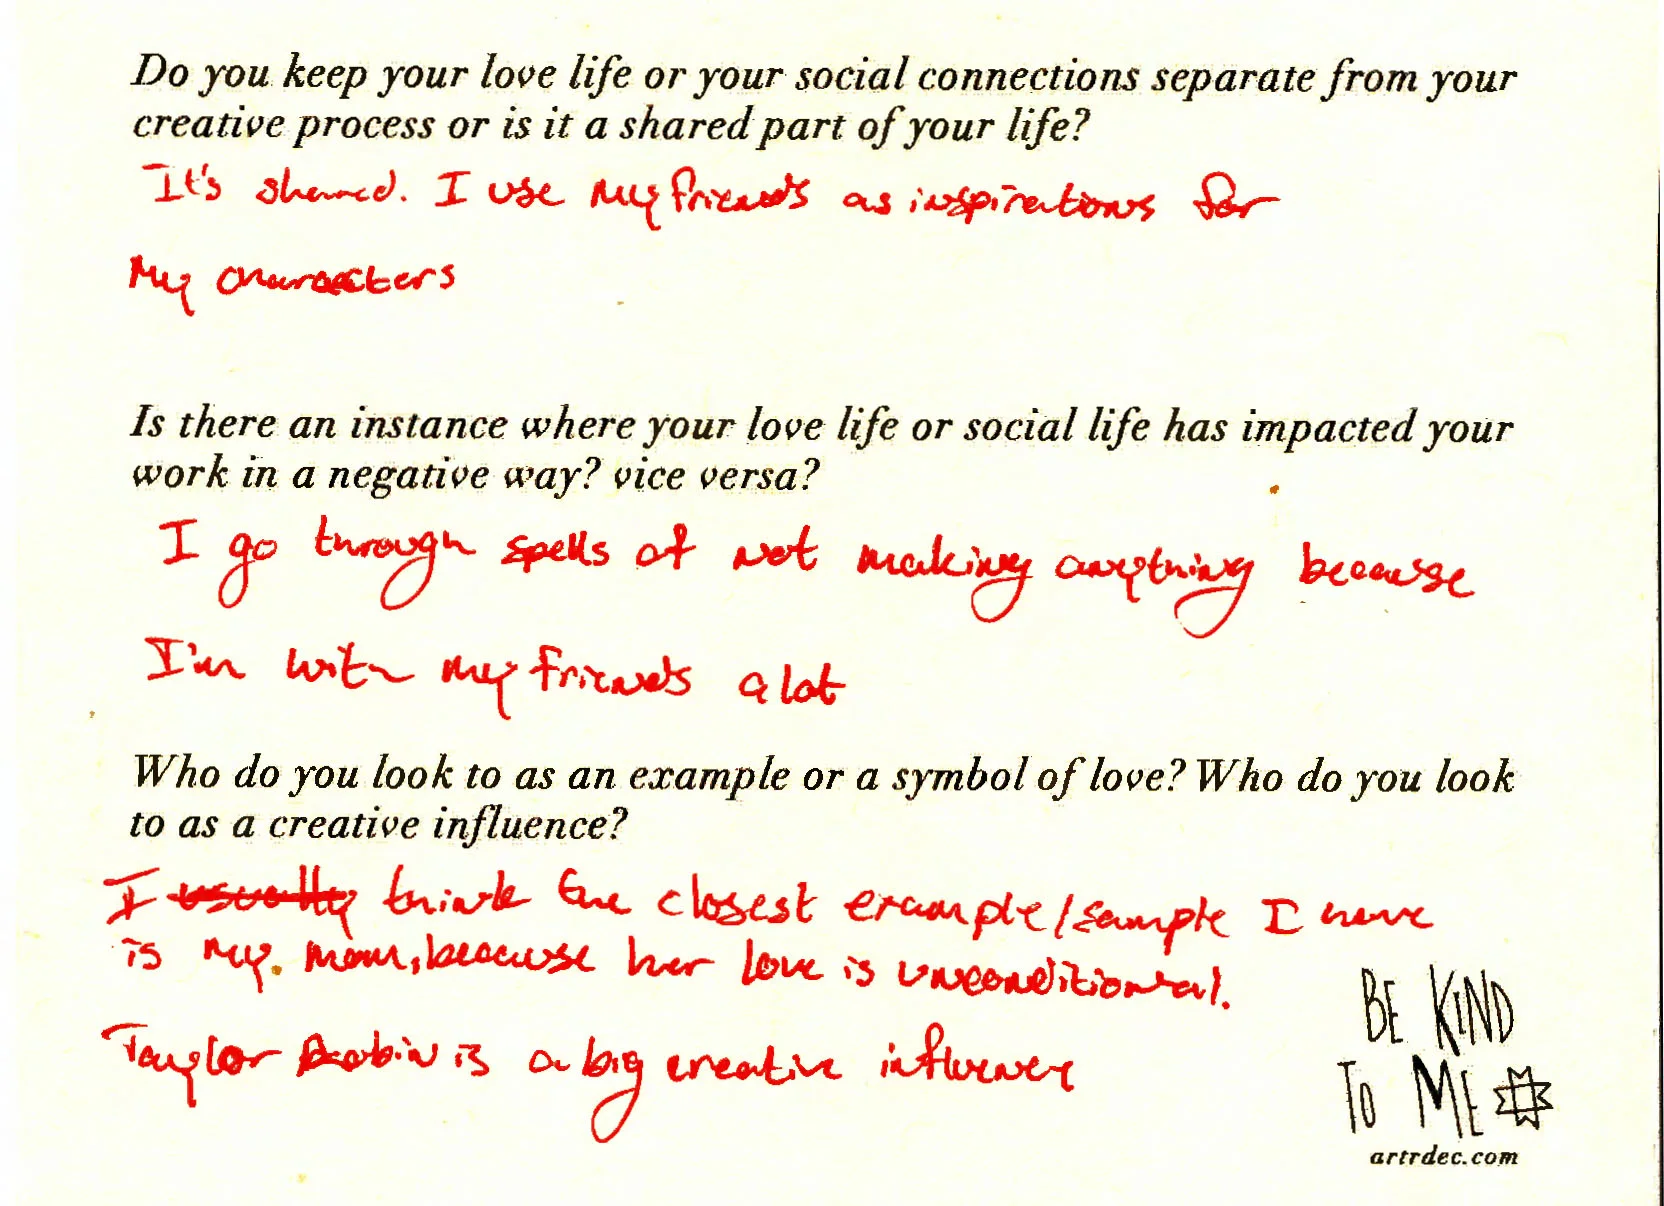 Do you keep your love life or your social connections separate from your
creative process or is it a shared part of your life?
It's shared. I use my friends as inspirations for
My characters
Is there an instance where your love life or social life has impacted your
work in a negative way? vice versa?
I go through spells of not making anything because
I'm with my friends a lot
Who do you look to as an example or a symbol of love? Who do you look
to as a creative influence?
I usually think the closest example/sample I have
is my mom, because her love is unconditional.
Taylor is a big creative influence
BE KIND
TO ME
artrdec.com